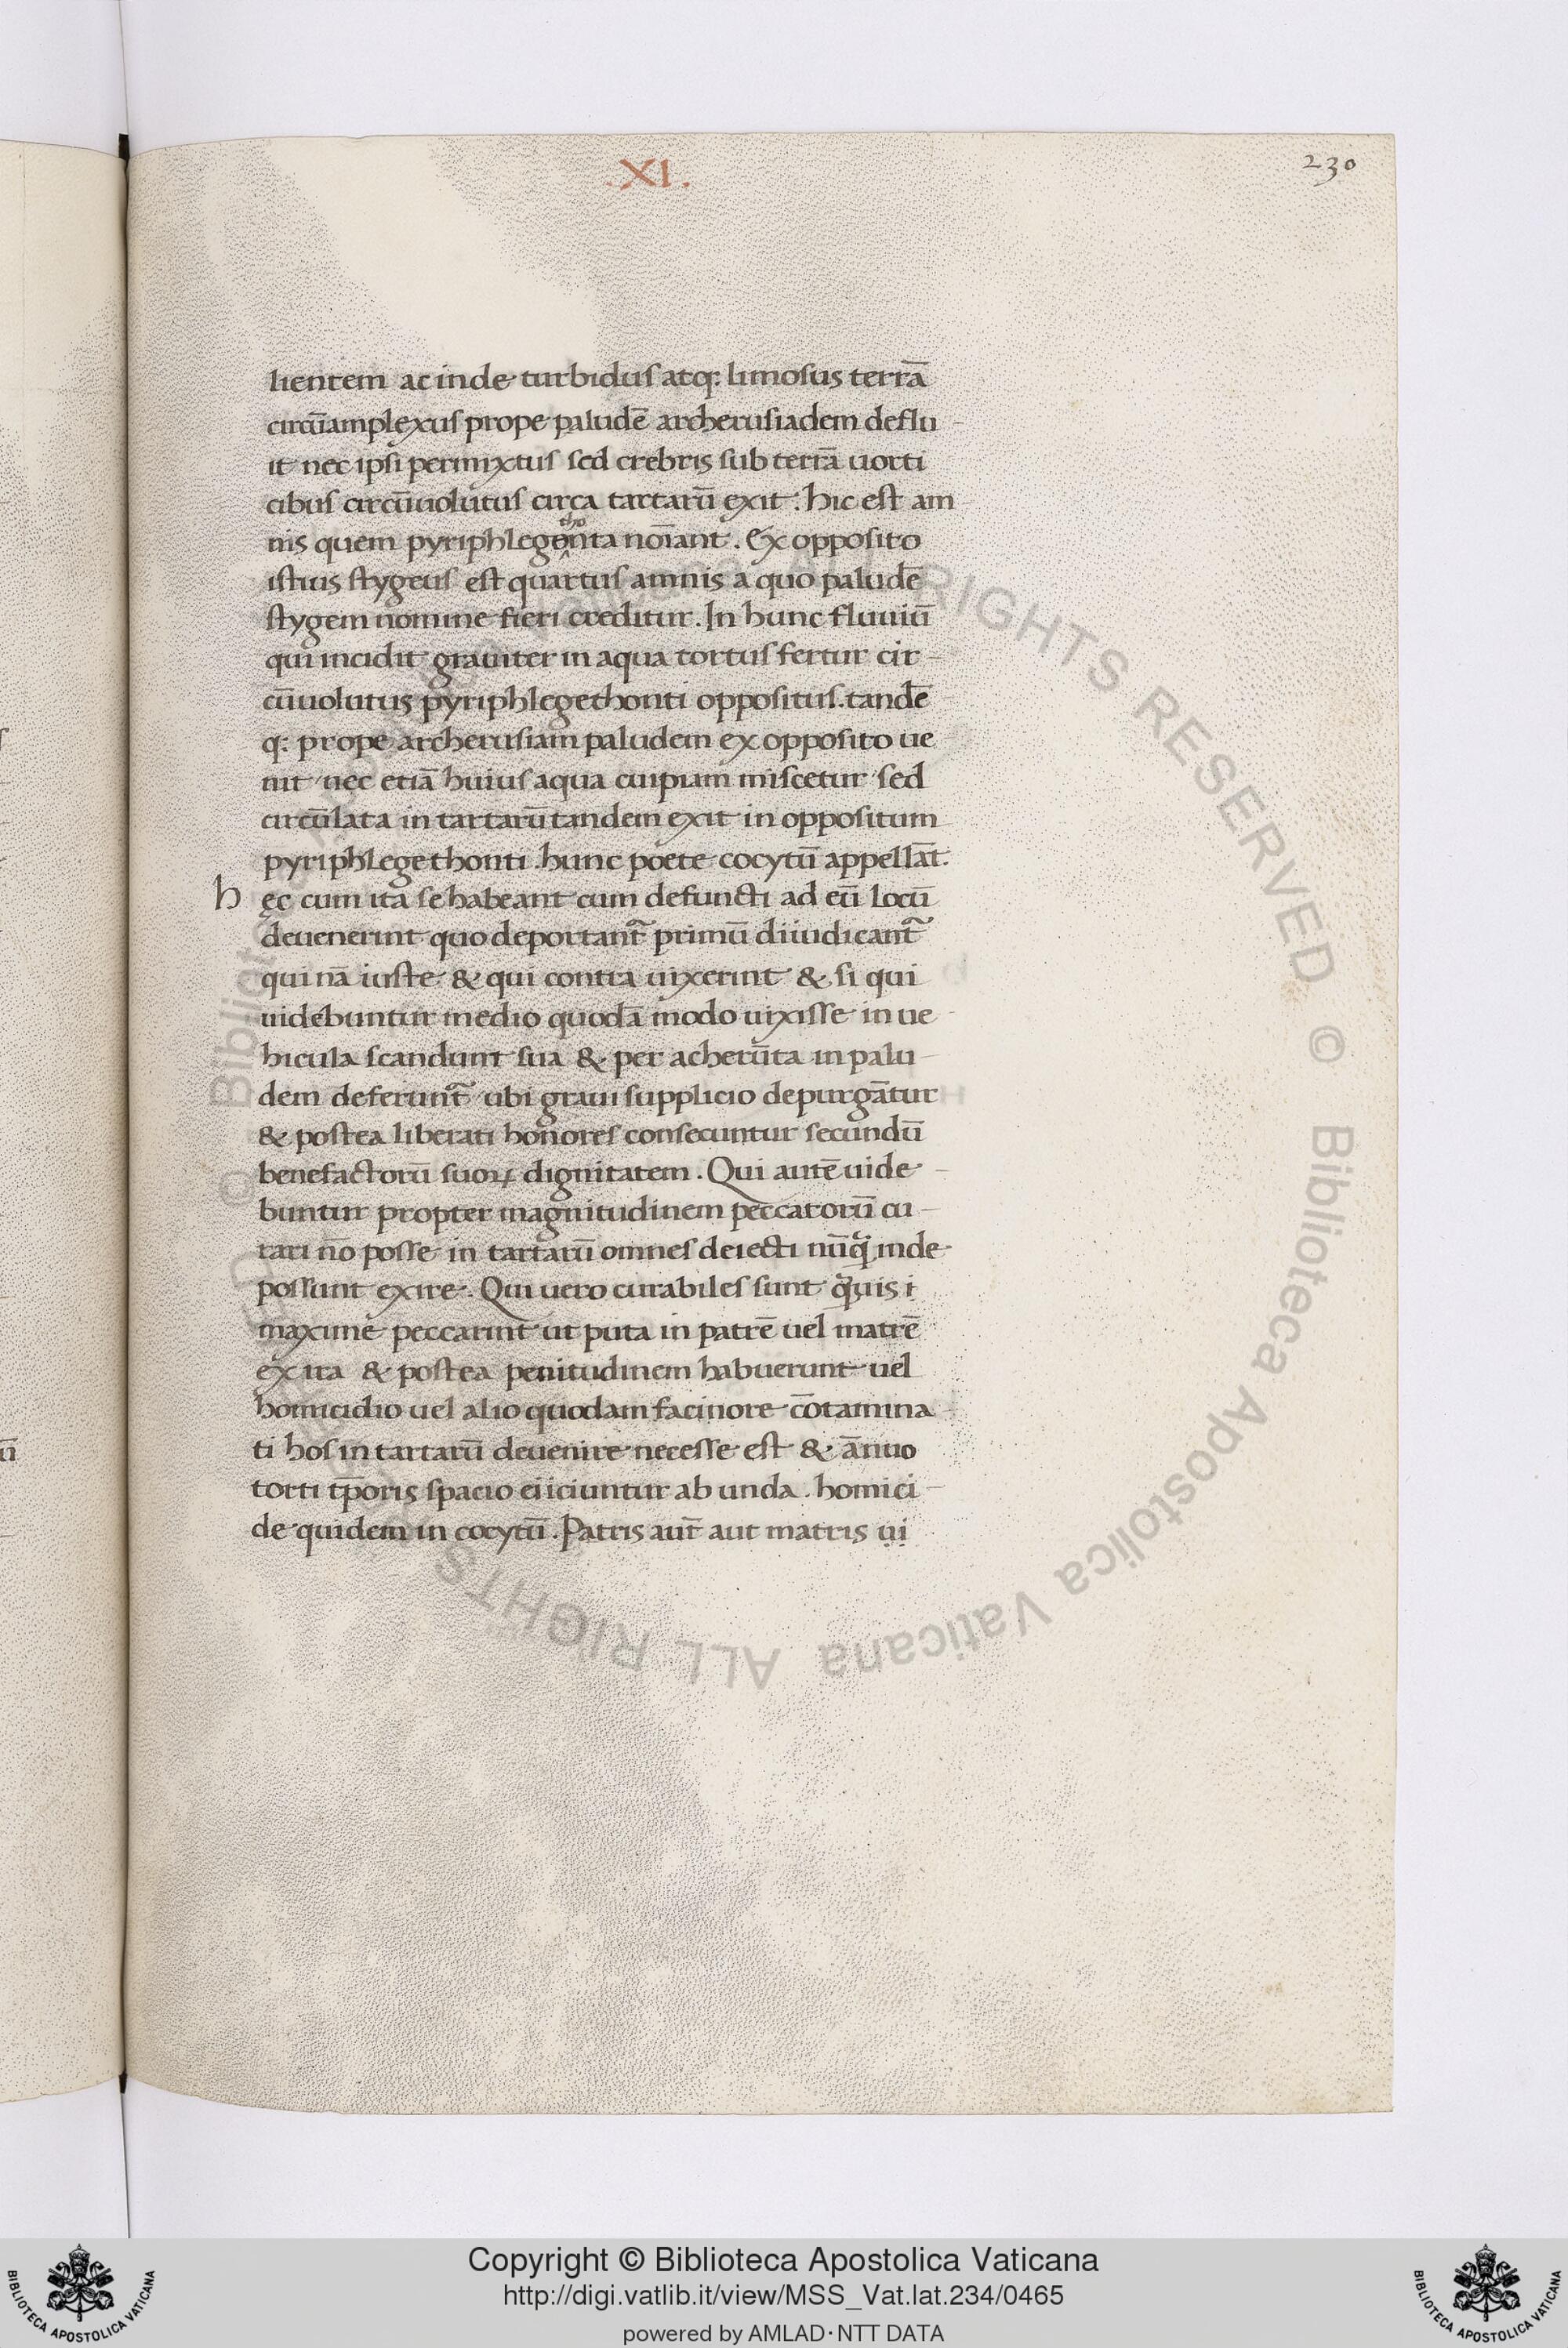 .XI.
230
lientem ac inde turbidus atq: limosus terrā
circūamplexus prope paludē archerusiadem deflu-
it nec ipsi permixtus sed crebris sub terrā uorti
cibus circūuolutus circa tartarū exit: hic est am
tho
nis quem pyriphlegonta noīant. Ex opposito
istius stygeus est quartus amnis a quo paludē
stygem nomine fieri creditur. In hunc fluuiū
qui incidit grauiter in aqua tortus fertur cir-
cūuolutus pyriphlegethonti oppositus. tandē
q: prope archerusiam paludem ex opposito ue
nit nec etiā huius aqua cuipiam miscetur sed
circūlata in tartarū tandem exit in oppositum
pyriphlegethonti. hunc poete cocytū appellāt.
hęc cum ita se habeant cum defuncti ad eū locū
deuenerint quo deportant̃ primū diiudicant̃
qui nā iuste & qui contra uixerint & si qui
uidebuntur medio quodā modo uixisse in ue-
hicula scandunt sua & per acherūta in palu-
dem deferunt̃ ubi graui supplicio depurgātur
& postea liberati honores consecuntur secundū
benefactorū suoꝝ dignitatem. Qui autē uide-
buntur propter magnitudinem peccatorū cu-
rari nō posse in tartarū omnes deiecti nūq̃ inde
possunt exire. Qui uero curabiles sunt q̃uis i
maxime peccarint ut puta in patrē uel matrē
ex ira & postea penitudinem habuerunt uel
homicidio uel alio quodam facinore cōtamina-
ti hos in tartarū deuenire necesse est & ānuo
torti tp̄oris spacio eiiciuntur ab unda. homici-
de quidem in cocytū. Patris aut̄ aut matris ui
ū
Copyright © Biblioteca Apostolica Vaticana
http://digi.vatlib.it/view/MSS_Vat.lat.234/0465
powered by AMLAD·NTT DATA
BIBLIOTECA APOSTOLICA VATICANA
BIBLIOTECA APOSTOLICA VATICANA
© Biblioteca Apostolica Vaticana ALL RIGHTS RESERVED © Biblioteca Apostolica Vaticana ALL RIGHTS RESERVED